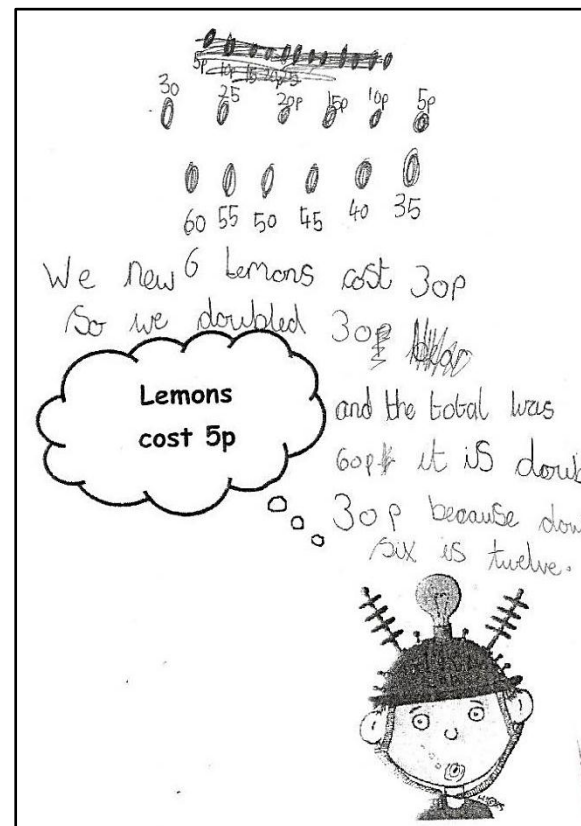 5p 10p 15 20p 25
30 25 20p 15p 10p 5p
60 55 50 45 40 35
We new 6 Lemons cost 30p
So we doubled 30p
Lemons
cost 5p
and the total was
60p it is doub
30p because dou
six is twelve.